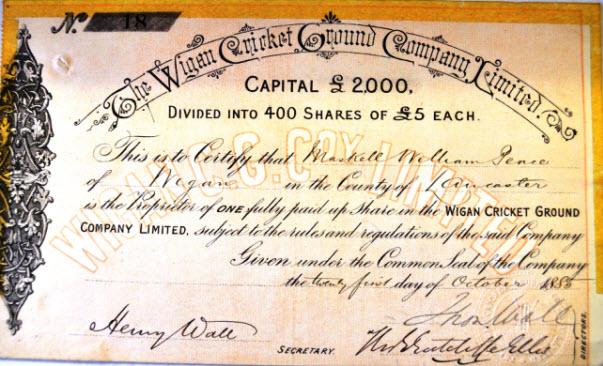 No. 18
The Wigan Cricket Ground Company Limited.
CAPITAL £2,000,
DIVIDED INTO 400 SHARES OF £5 EACH.
This is to Certify that Maskell William Peace
of Wigan in the County of Lancaster
is the Proprietor of ONE fully paid up Share in the WIGAN CRICKET GROUND
COMPANY LIMITED, subject to the rules and regulations of the said Company
Given under the Common Seal of the Company
the twenty first day of October 1885
Thos. Wall
Henry Wall
SECRETARY.
Thos Sutcliffe Ellis
DIRECTORS.
WIGAN C.G. COY. LIMITED